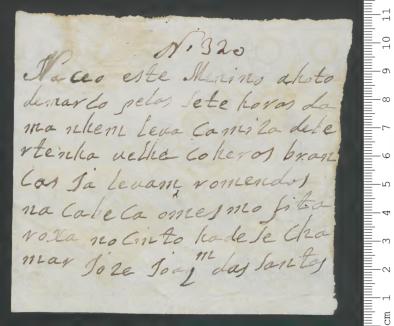 N. 320
Naceo este Menino ahoto
demarco pelas sete horas da
ma nhem leva Camiza debe
rtenha velhe coheros bran
cos Ja levam romendos
na cabeca omesmo fita
roxa nocinto hade se cha
mar Joze Joaqm dos Santos
cm 1 2 3 4 5 6 7 8 9 10 11